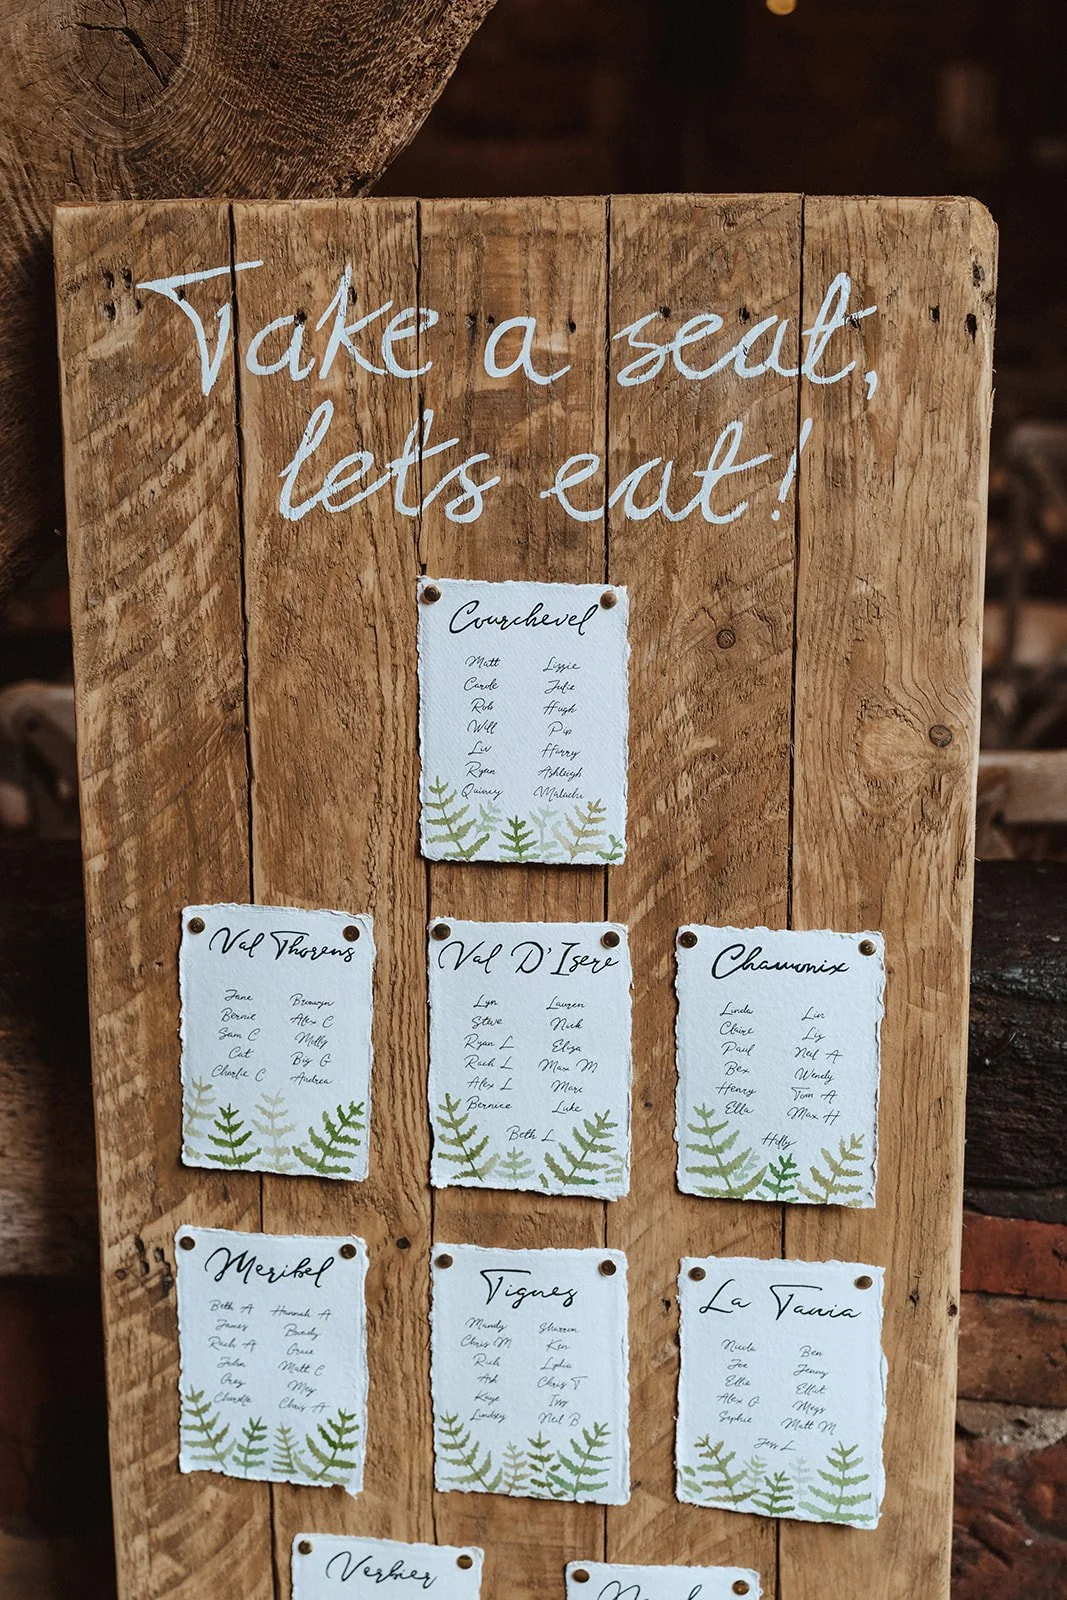 Take a seat,
let's eat!
Courchevel
Matt Lizzie
Carole Julie
Rob Hugh
Will Pip
Liv Harry
Ryan Ashleigh
Quincy Malachi
Val Thorens
Jane Bronwyn
Bernie Alex C
Sam C Milly
Cat Big G
Charlie C Andrea
Val D'Isere
Lyn Lauren
Steve Nick
Ryan L Eliza
Rach L Max M
Alex L Marc
Bernice Luke
Beth L
Chamonix
Linda Lin
Claire Liz
Paul Neil A
Bex Wendy
Henry Tom A
Ella Max H
Hilly
Meribel
Beth A Hannah A
James Brandy
Rach A Grace
John Matt C
Greg Meg
Charlie Chris A
Tignes
Mandy Sharron
Chris M Ken
Rich Lydia
Ash Chris T
Kaye Issy
Lindsey Neil B
La Tania
Nicola Ben
Joe Jenny
Ellie Elliot
Alex G Megs
Sophie Matt M
Jess L
Verbier